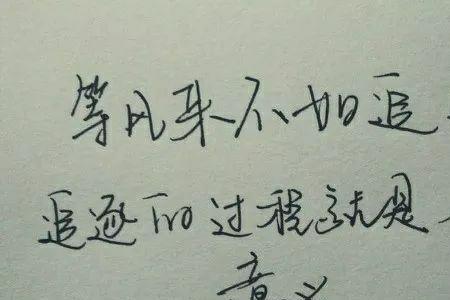 等风来不如追
追逐的过程就是
意义